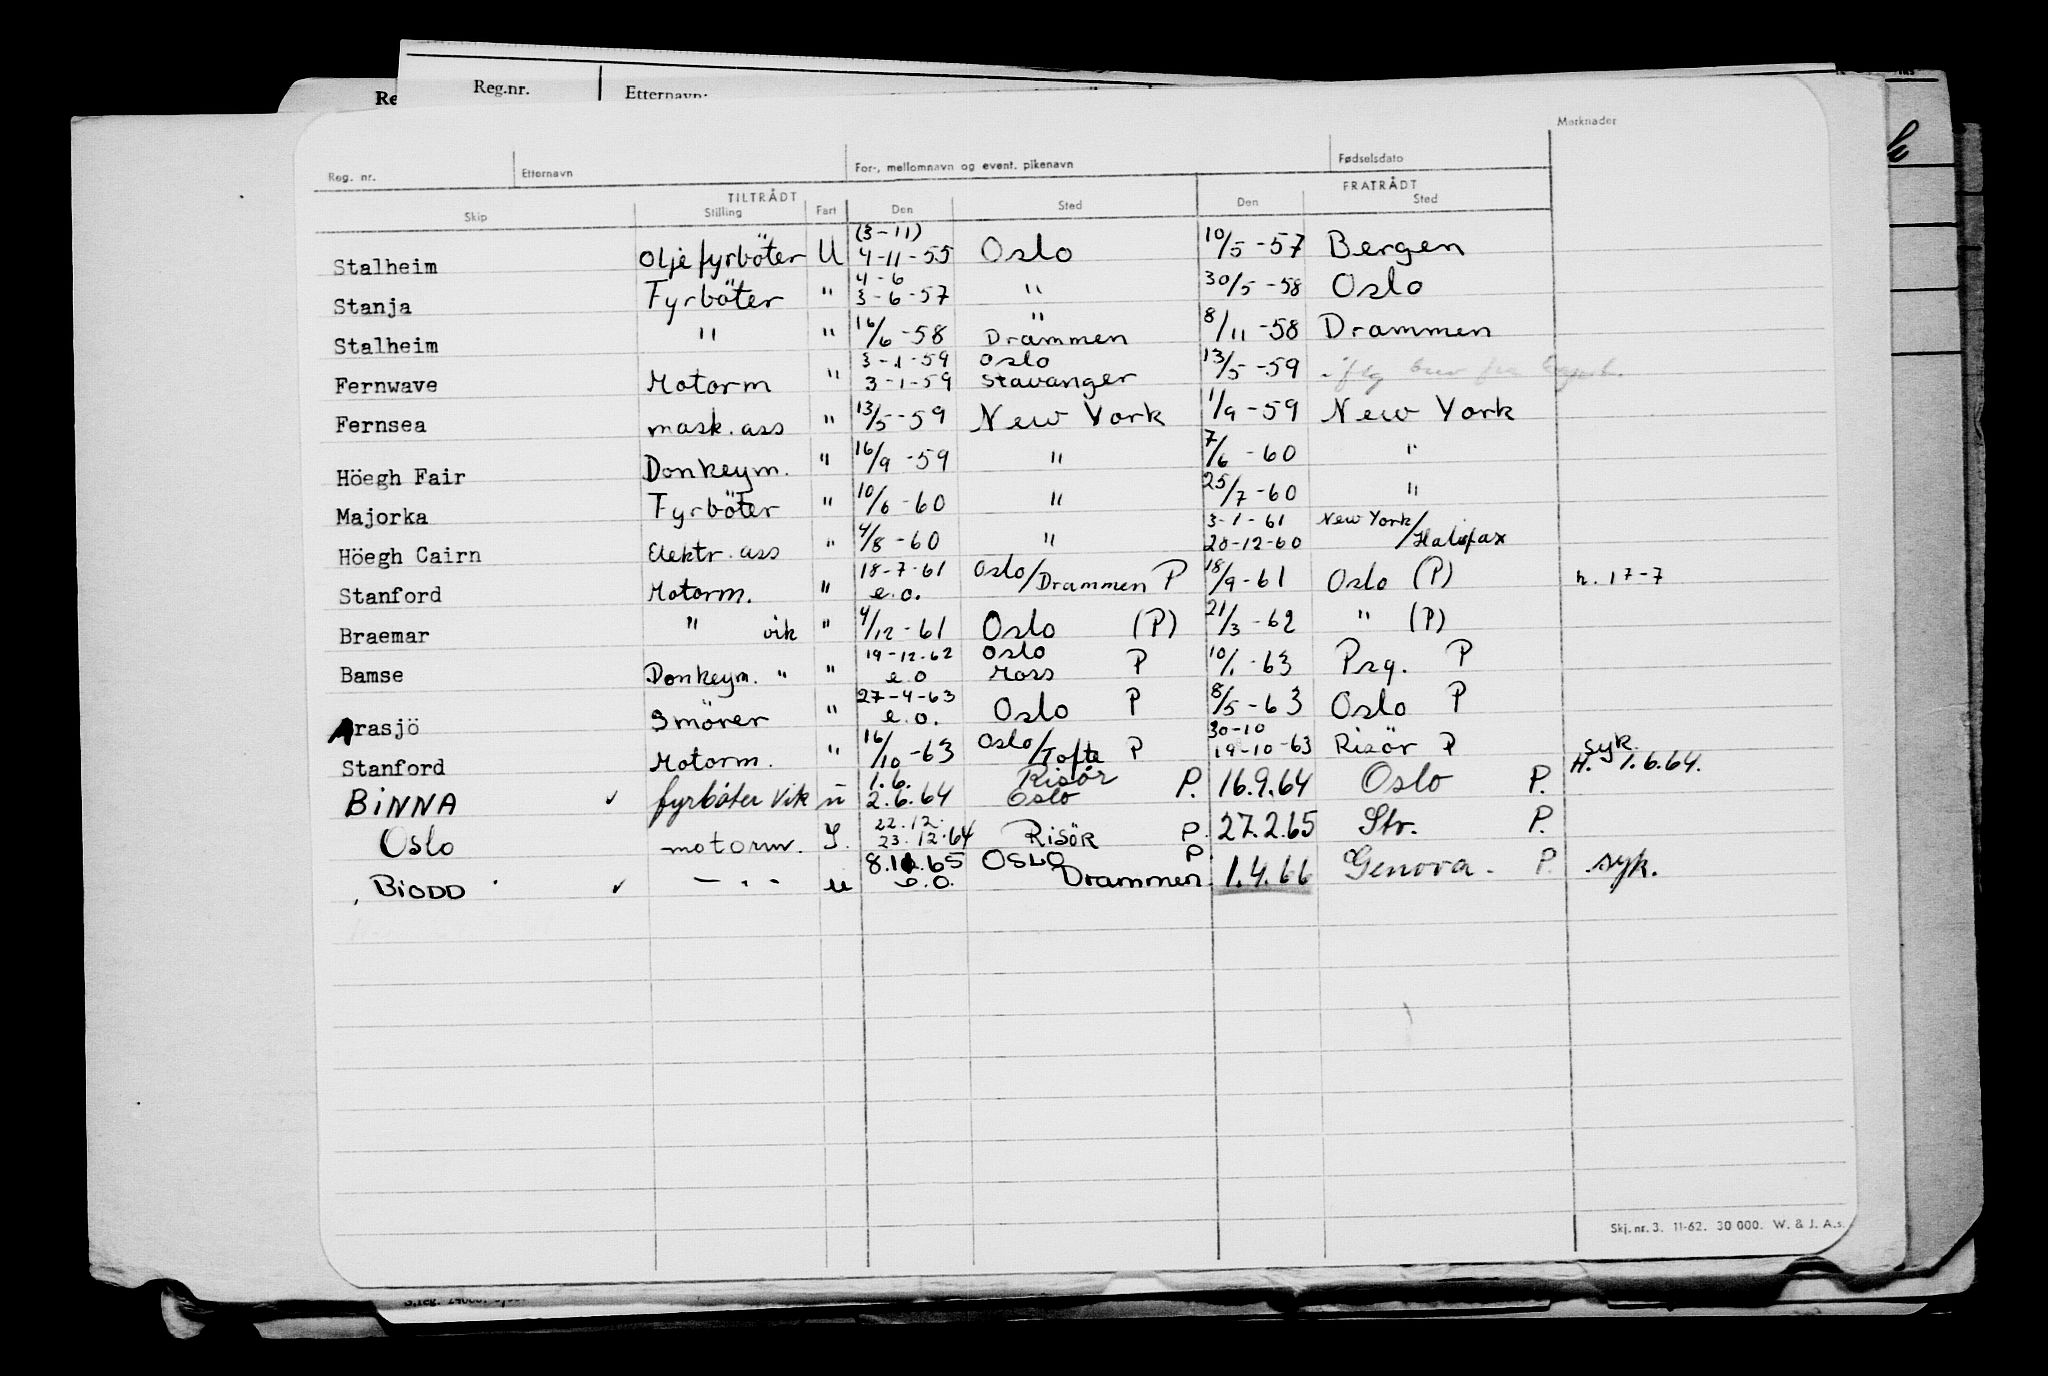 Reg.nr. Etternavn:
Merknader
Reg. nr. Etternavn For-, mellomnavn og event. pikenavn Fødselsdato
TILTRÅDT FRATRÅDT
Skip Stilling Fart Den Sted Den Sted
(3-11)
Stalheim Oljefyrböter U 4-11-55 Oslo 10/5-57 Bergen
4-6
Stanja Fyrböter " 3-6-57 " 30/5-58 Oslo
"
Stalheim " " 16/6-58 Drammen 8/11-58 Drammen
3-1-59 Oslo
Fernwave Motorm " 3-1-59 Stavanger 13/5-59
Fernsea mask.ass " 13/5-59 New York 1/9-59 New York
Höegh Fair Donkeym. " 16/9-59 " 7/6-60 "
Majorka Fyrböter " 10/6-60 " 25/7-60 "
3-1-61 New York/
Höegh Cairn Elektr.ass " 4/8-60 " 20-12-60 Halifax
18-7-61 Oslo/
Stanford Motorm. " e.o. Drammen P 18/9-61 Oslo (P) h. 17-7
Braemar " vik " 4/12-61 Oslo (P) 21/3-62 " (P)
19-12-62 Oslo
Bamse Donkeym. " " e.o Moss P 10/1-63 Psg. P
27-4-63
Arasjö Smörer " e.o. Oslo P 8/5-63 Oslo P
30-10
Stanford Motorm. " 16/10-63 Oslo/Tofte P 19-10-63 Risör P syk.
1.6. Risör H. 1.6.64.
BINNA fyrböter vik u 2.6.64 Oslo P. 16.9.64 Oslo P.
22.12.
Oslo motorm. I. 23.12.64 Risör P. 27.2.65 Str. P.
8.11.65 OSLO P.
BIODD - " - u e.o. Drammen 1.4.66 Genova. P. syk.
Skj. nr. 3. 11-62. 30 000. W. & J. A.s.